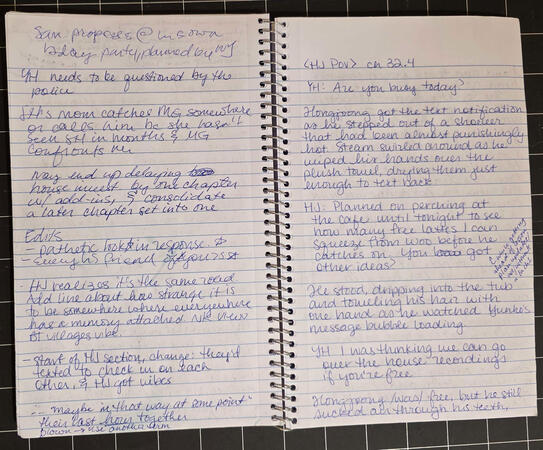 San proposes @ his own
bday party, planned by WY
YH needs to be questioned by the
police
SH's mom catches MG somewhere
or calls him bc she hasn't
seen SH in months & MG
confronts her
May end up delaying
house invest by one chapter
w/ add-ins, & consolidate
a later chapter set into one
Edits
- pathetic look in response
- Seung
- HJ realizes it's the same road
Add line about how strange it is
to be somewhere where everywhere
has a memory attached. NK view
BT villages vibe.
- Start of HJ section, change: they'd
texted to check in on each
other, & HJ got vibes
- "maybe in that way at some point"
their last hour together
blown → use another term
<HJ POV> ch 32.4
YH: Are you busy today?
Hongjoong got the text notification
as he stepped out of a shower
that had been almost punishingly
hot. Steam swirled around as he
wiped his hands over the
plush towel, drying them just
enough to text back
HJ: Planned on perching at
the cafe until tonight to see
how many free lattes I can
squeeze from Woo before he
catches on. You got
other ideas?
He stood, dripping into the tub
and toweling his hair with
one hand as he watched Yunho's
message bubble loading
YH: I was thinking we can go
over the house recordings
if you're free
Hongjoong was free, but he still
sucked air through his teeth,